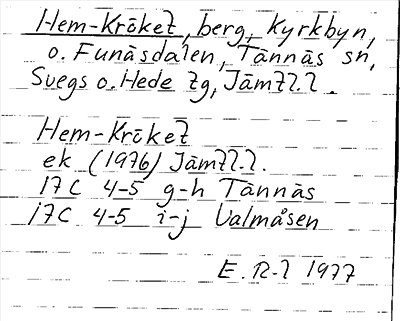 Hem-Kröket, berg, Kyrkbyn,
o. Funäsdalen, Tännäs sn,
Svegs o. Hede tg, Jämtl. l.
Hem-Kröket
ek (1976) Jämtl. l.
17C 4-5 g-h Tännäs
17C 4-5 i-j Valmåsen
E. R-l 1977